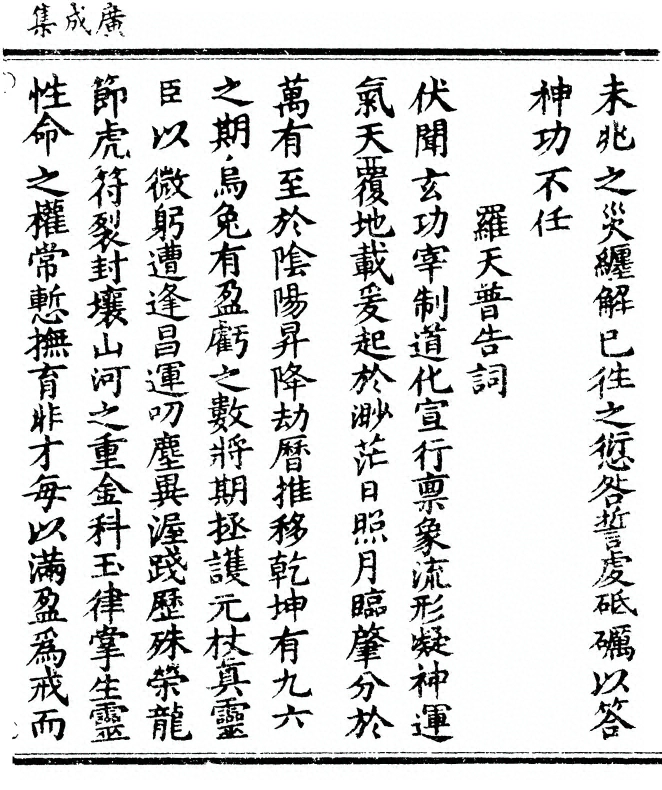 廣成集
未兆之災纏解已徃之愆咎誓虔砥礪以答
神功不任
羅天普告詞
伏聞玄功宰制道化宣行禀象流形凝神運
氣天覆地載爰起於渺茫日照月臨肇分於
萬有至於陰陽昇降劫曆推移乾坤有九六
之期烏兔有盈虧之數將期拯護元杖真靈
臣以微躬遭逢昌運叨塵異渥踐歷殊榮龍
節虎符裂封壤山河之重金科玉律掌生靈
性命之權常慙撫育非才每以滿盈爲戒而